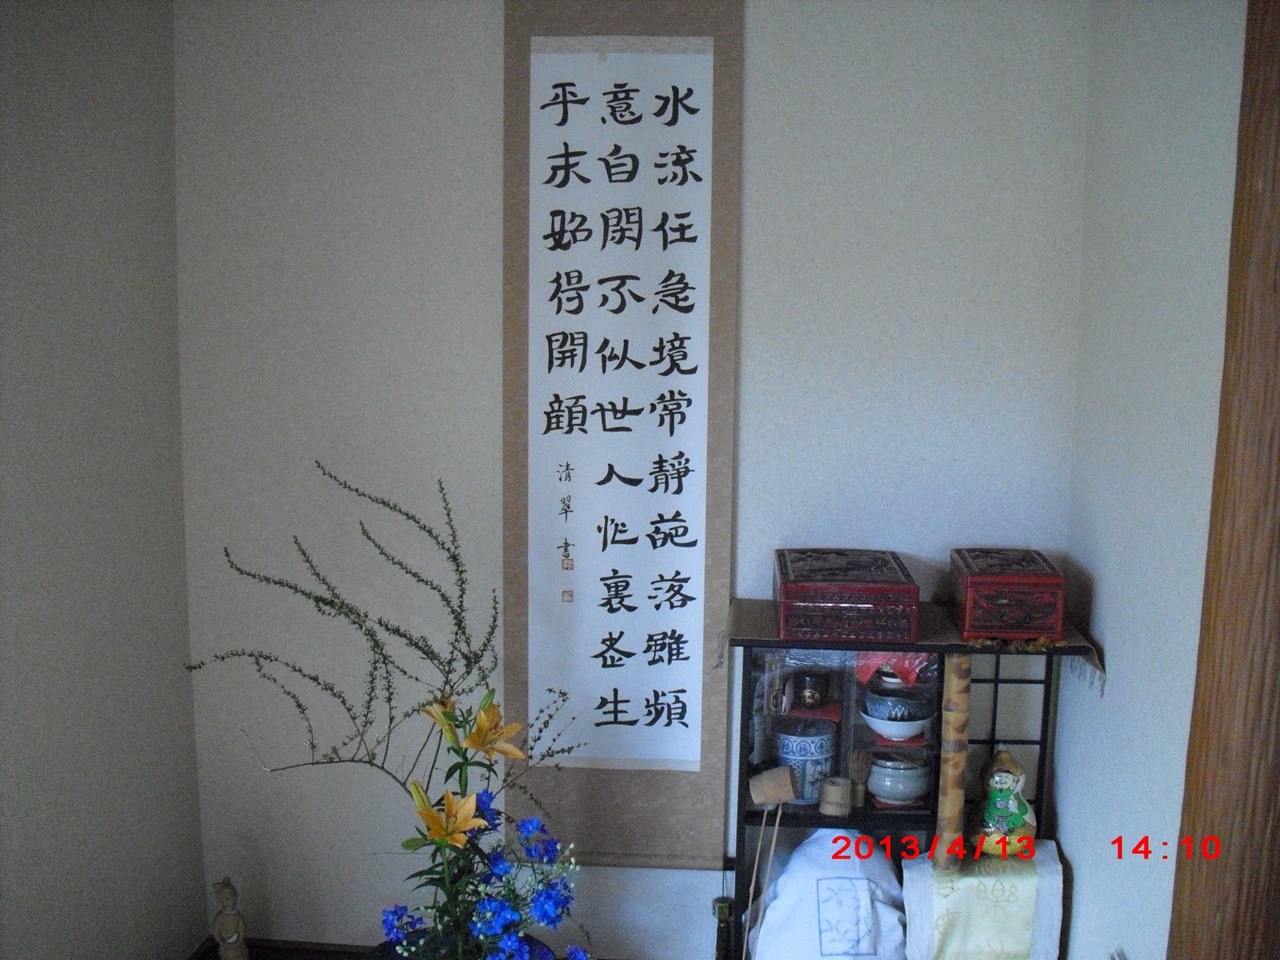 水流任急境常靜葩落雖頻
意自閑不似世人忙裏老生
平未始得開顔
清翠書
2013/4/13 14:10